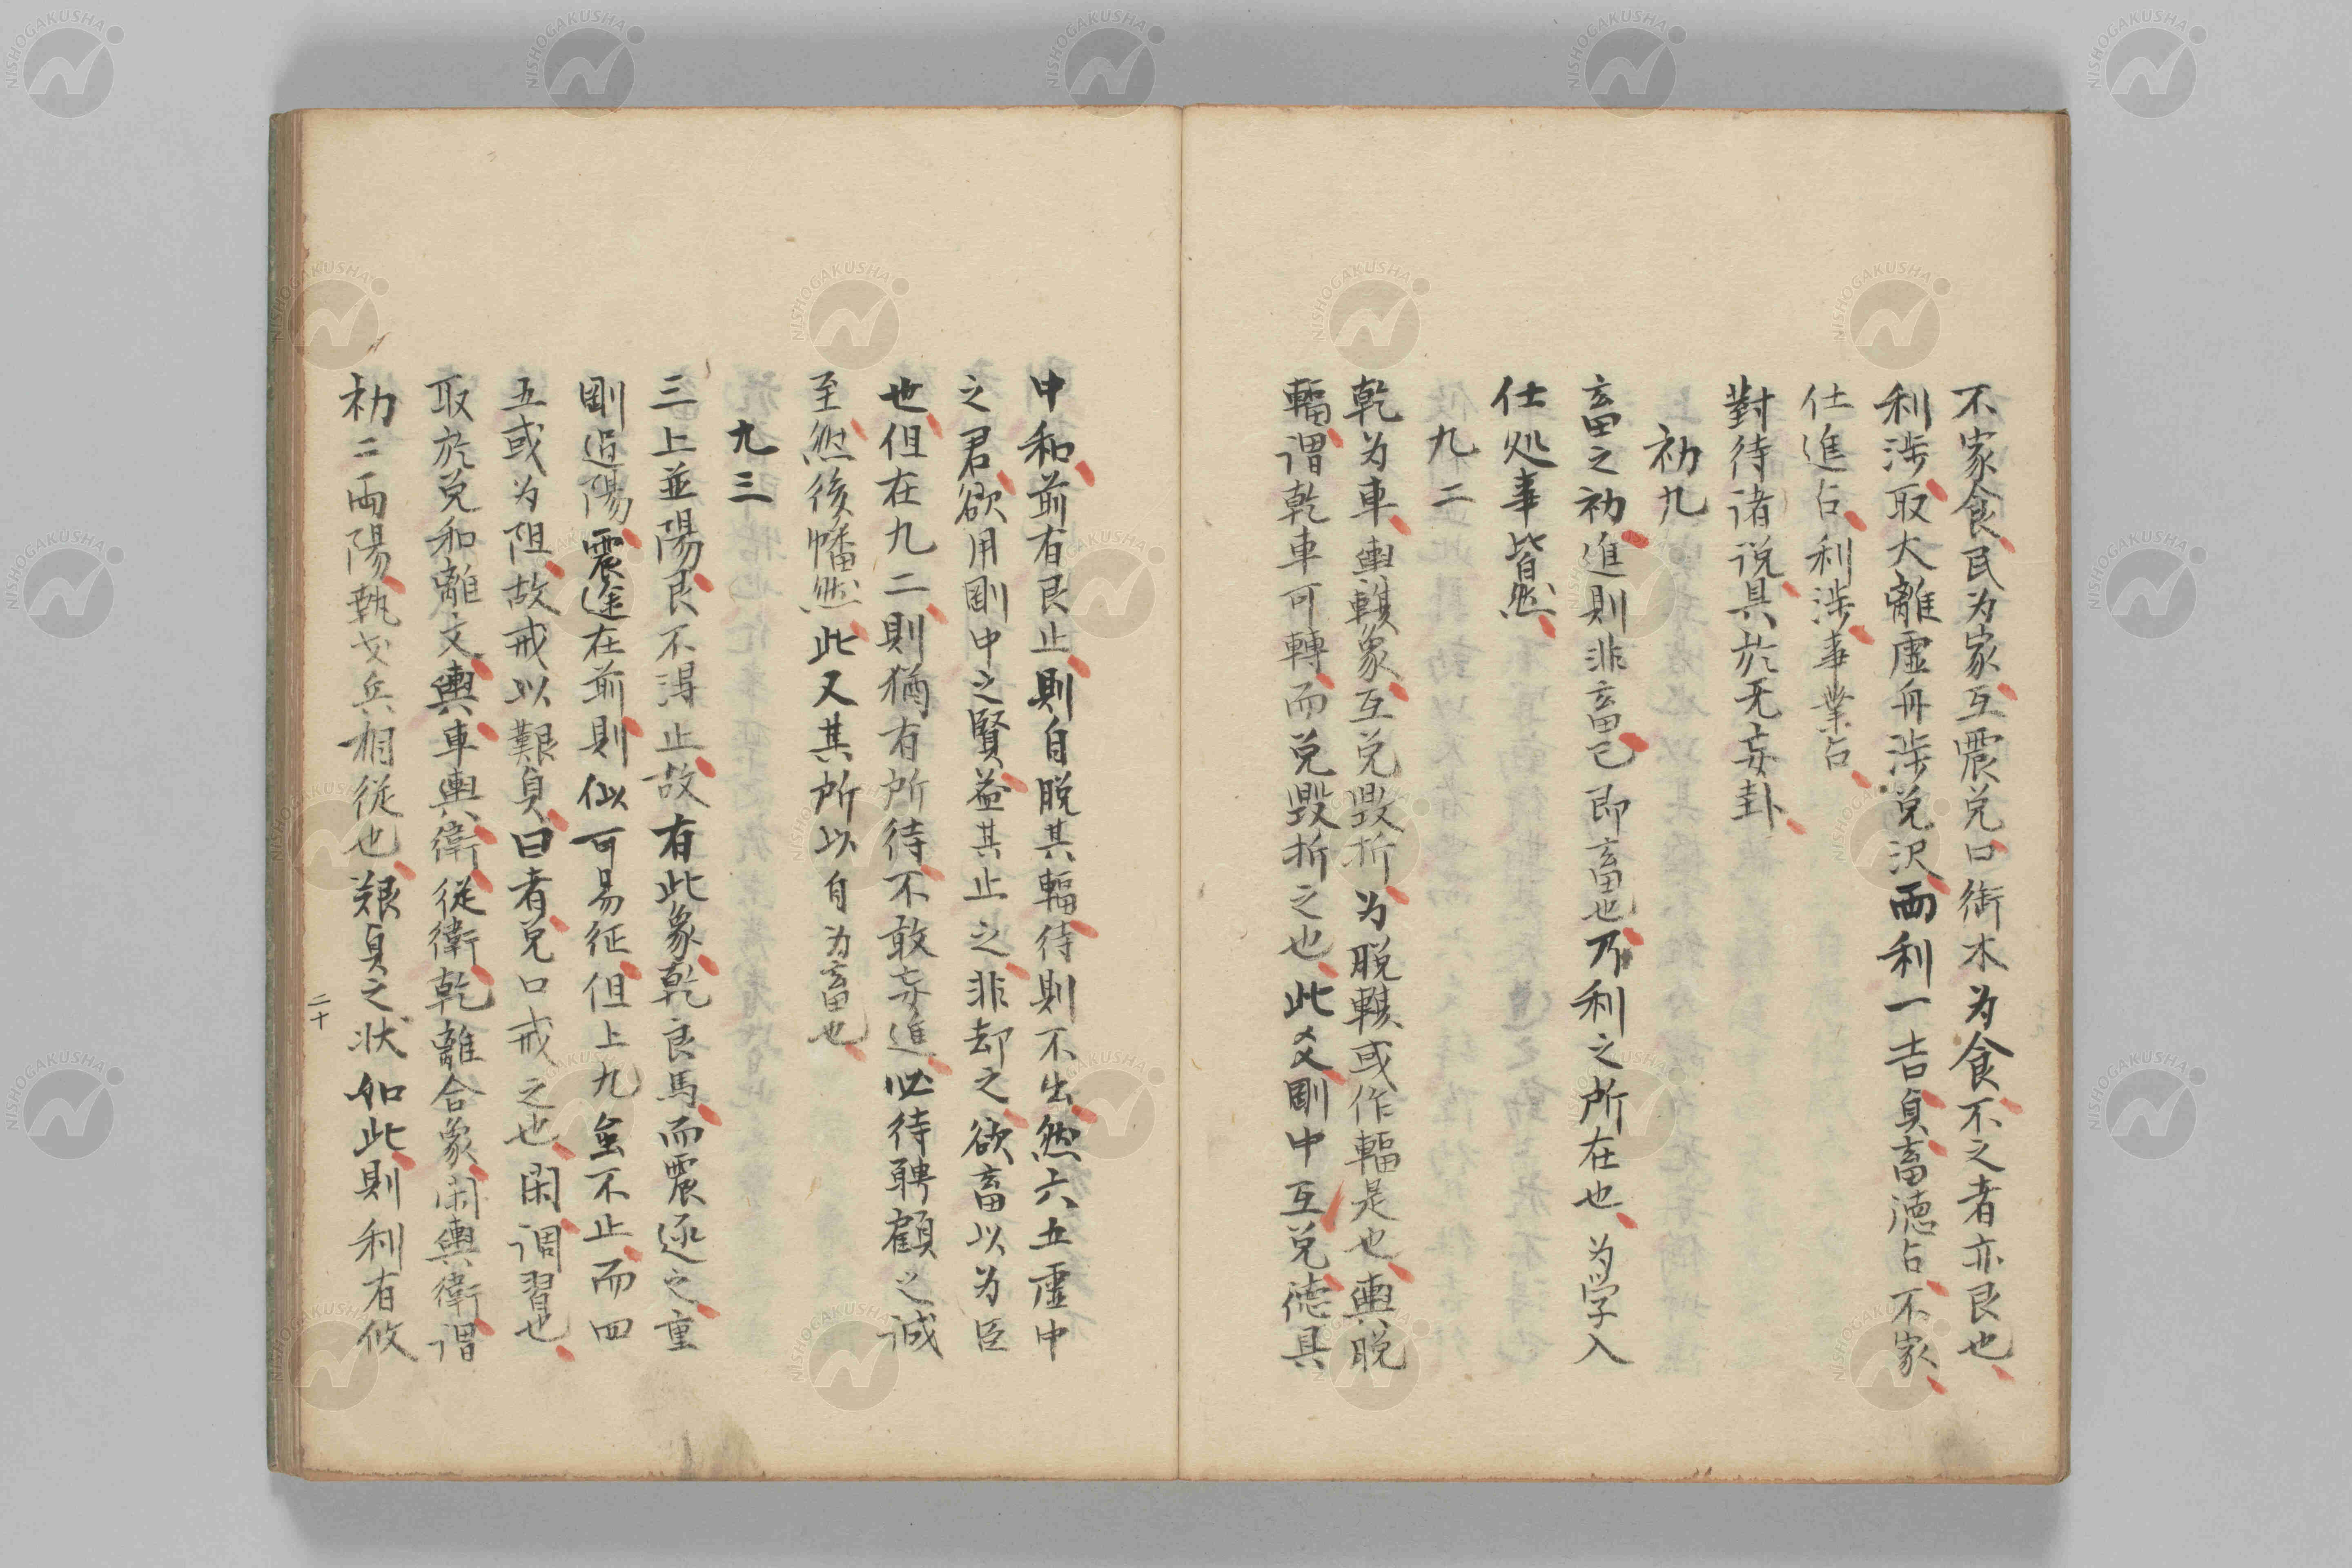 不家食民为家互震兑口衘木为食不之者亦艮也
利渉取大離虚舟渉兑沢而利一吉貞畜徳占不家
仕進占利渉事業占
對待诸说具於无妄卦
初九
畜之初進則非畜已即畜也乃利之所在也为学入
仕処事皆然
九二
乾为車輿輹象互兑毀折为脱輹或作輻是也輿脱
輻谓乾車可轉而兑毀折之也此爻剛中互兑徳具
中和前有艮止則自脱其輻待則不出然六五虚中
之君欲用剛中之賢益其止之非却之欲畜以为臣
也但在九二則猶有所待不敢妄進必待聘顧之诚
至然後幡然此又其所以自为畜也
九三
三上並陽艮不得止故有此象乾良馬而震逐之重
剛迫陽震途在前則似可易征但上九虽不止而四
五或为阻故戒以艱貞曰者兑口戒之也閑调習也
取於兑和離文輿車輿衛從衛乾離合象閑輿衛谓
初二両陽執戈兵相従也艱貞之状如此則利有攸
二十
NISHOGAKUSHA